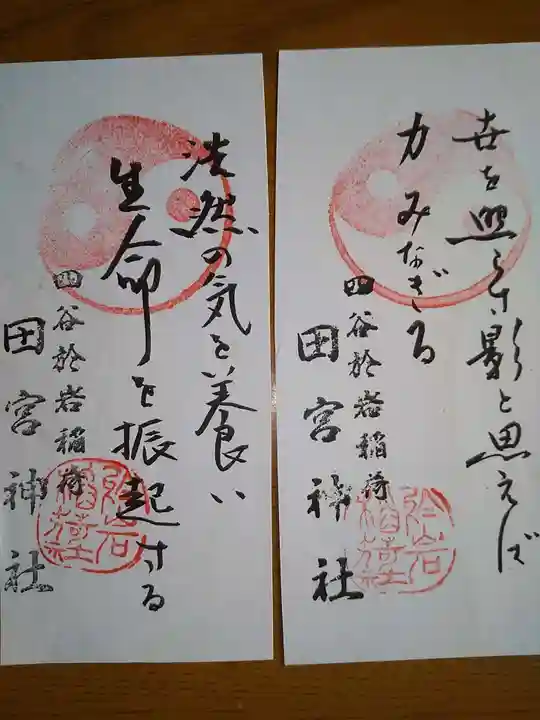 世を照らす影と思えば
力みなぎる
四谷於岩稲荷
田宮神社
於岩稲荷社
浩然の気を養い
生命を振起する
四谷於岩稲荷
田宮神社
於岩稲荷社